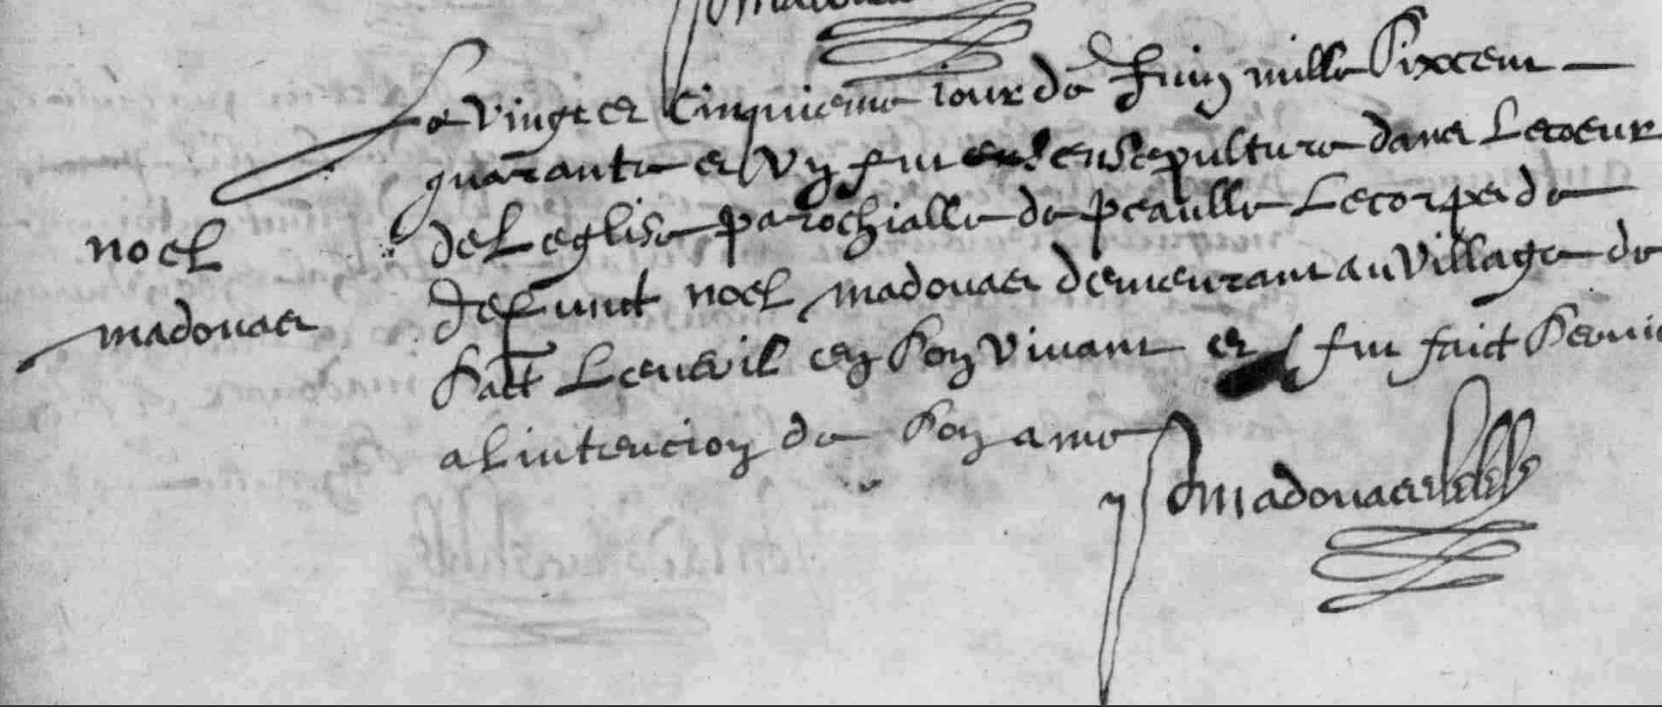 Le vingt et cinquieme iour de Juin mille Sixcent
quarante et un fut ensepulture dans Lecoeur
de L eglise parochialle de peaulle Lecorps de
noel
defunct noel madouas demeurant au village de
madouas
en son vivant et fut faict Servi
a L intencion de son ame
madouas